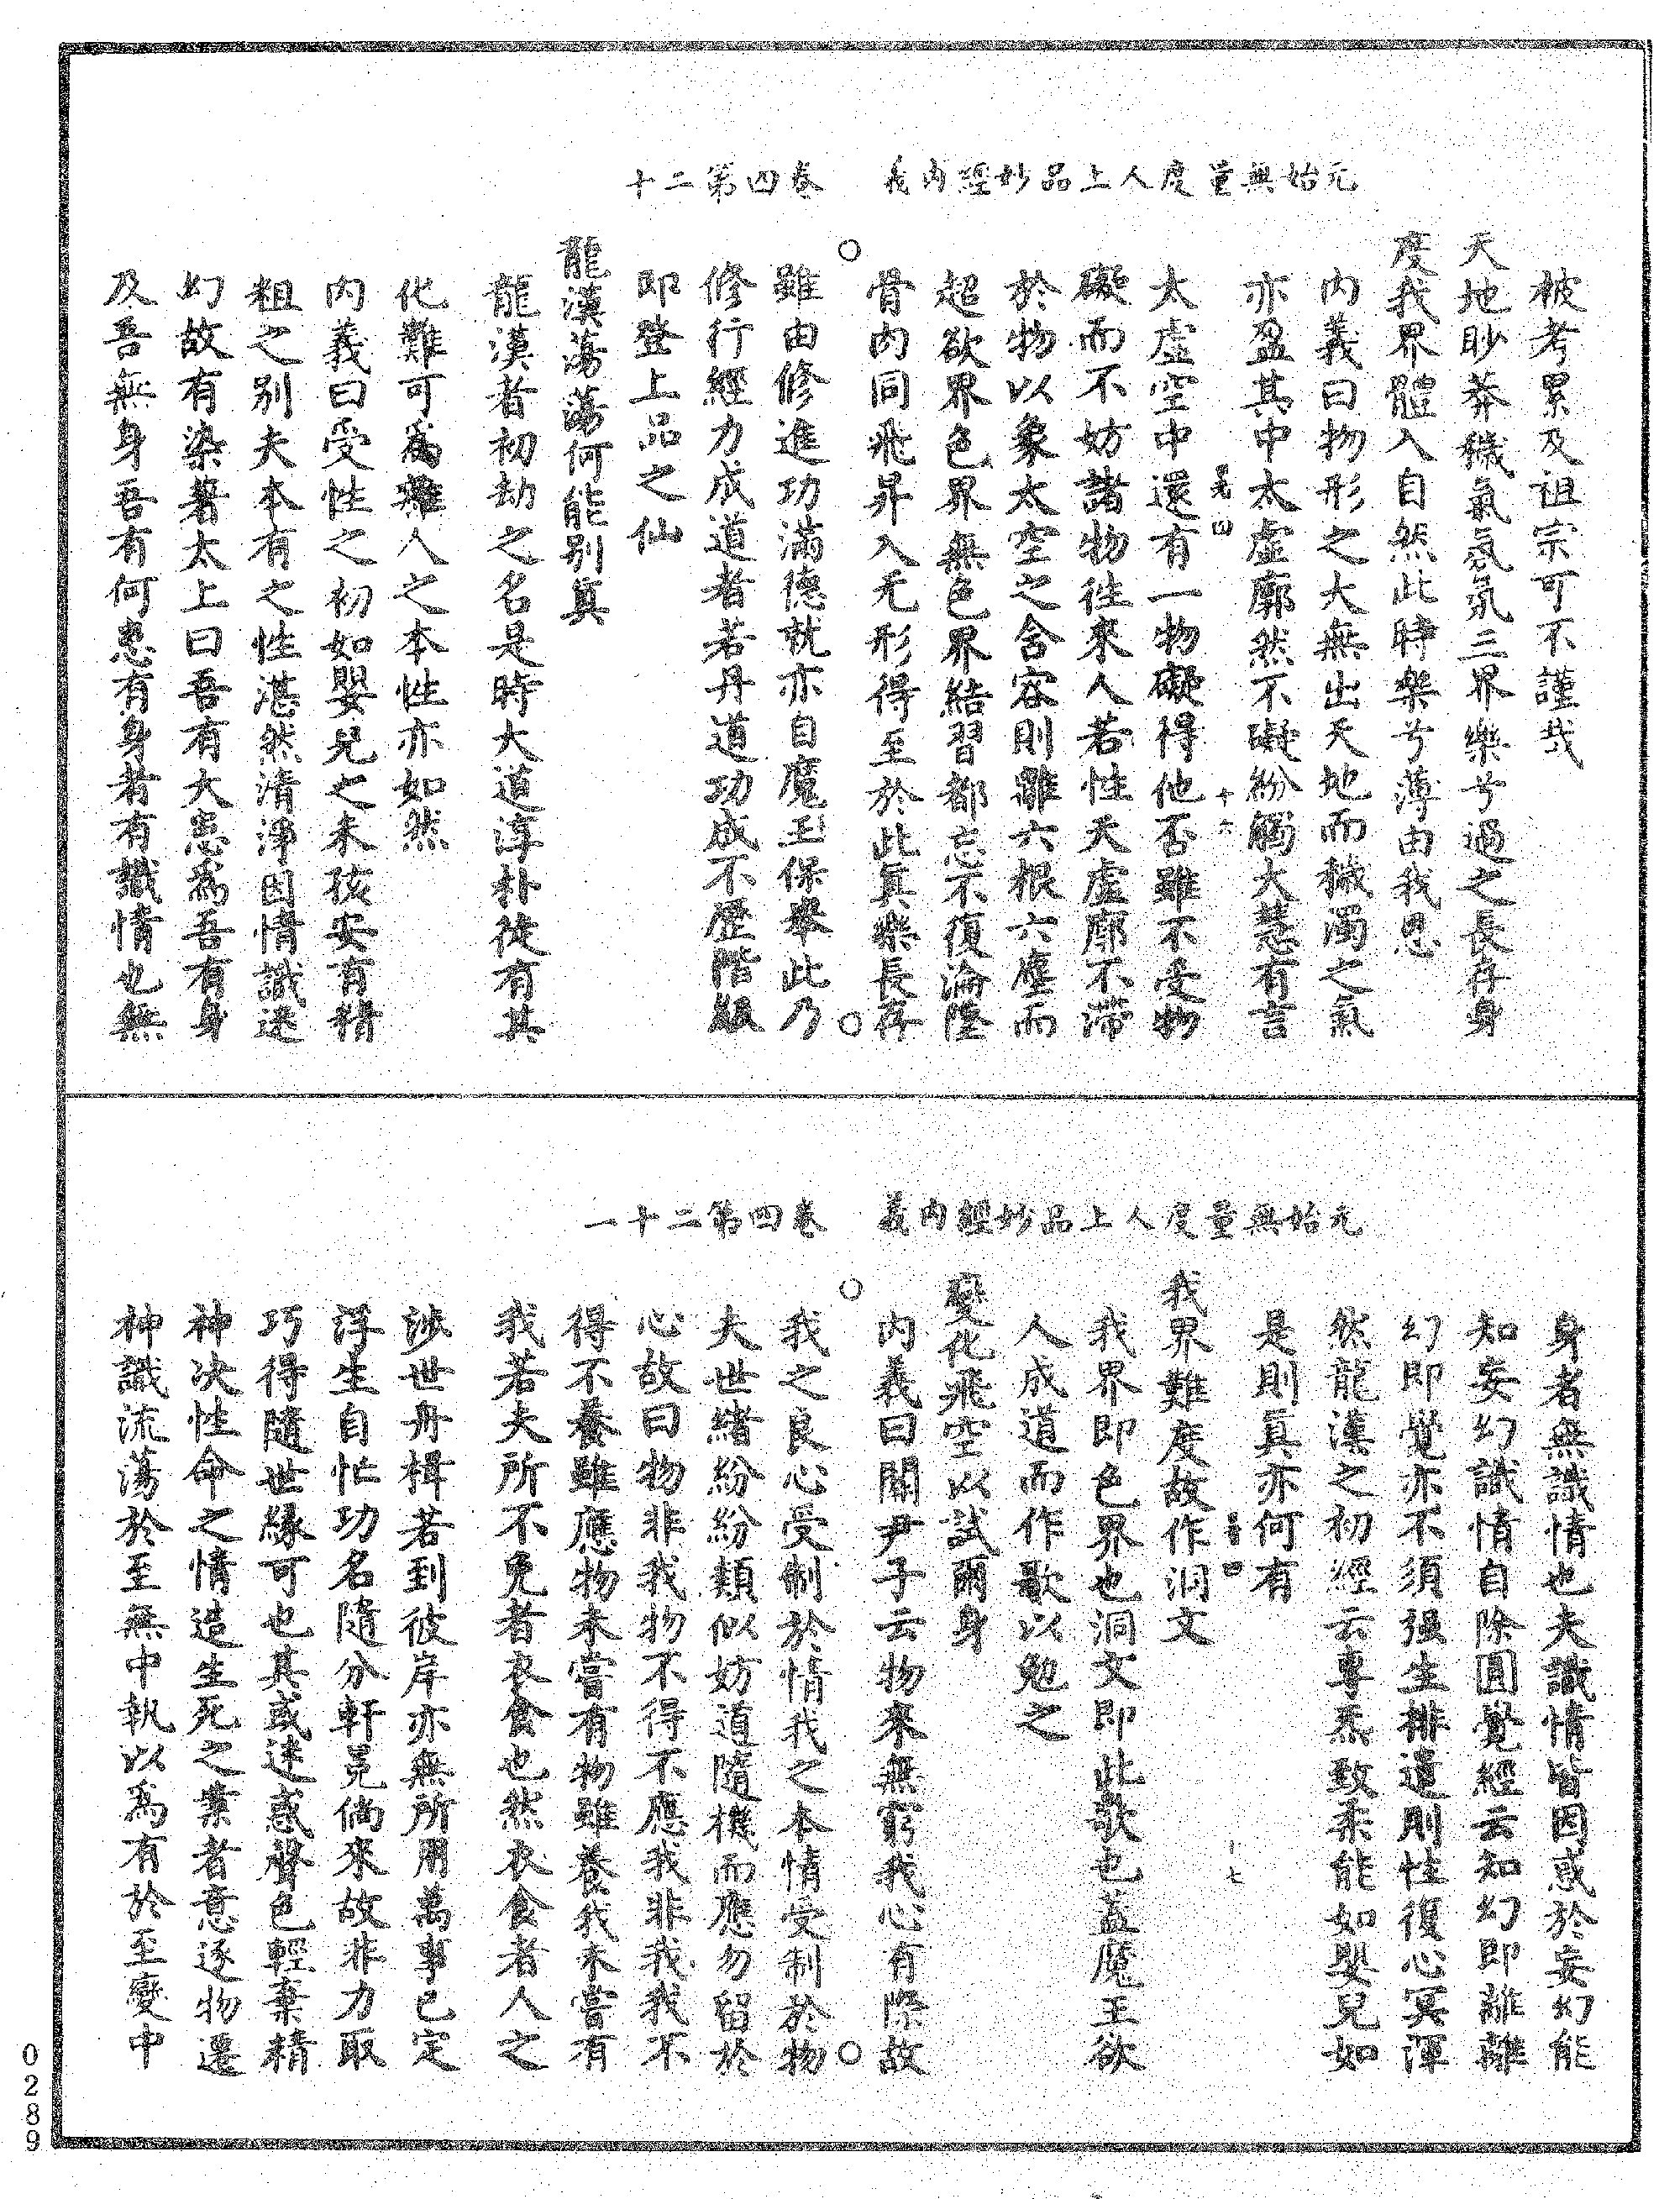 元始無量度人上品妙經內義　卷四第二十
被考累及祖宗可不謹哉
天地眇莽穢氣氛氛三界樂兮過之長存身
度我界體入自然此時樂兮薄由我恩
內義曰物形之大無出天地而穢濁之氣
亦盈其中太虛廓然不礙紛觸大慧有言
十六
太虛空中還有一物礙得他否雖不受物
礙而不妨諸物徃來人若性天虛廓不滯
於物以象太空之含容則雖六根六塵而
超欲界色界無色界結習都忘不復淪墜
骨肉同飛昇入无形得至於此真樂長存
雖由修進功滿德就亦自魔王保舉此乃
修行經力成道者若丹道功成不歷階級
即登上品之仙
龍漢蕩蕩何能別真
龍漢者初劫之名是時大道淳朴徒有其
化難可為雜人之本性亦如然
內義曰受性之初如嬰兒之未孩安有精
粗之別夫本有之性湛然清淨因情識迷
幻故有染著太上曰吾有大患為吾有身
及吾無身吾有何患有身者有識情也無
元始無量度人上品妙經內義　卷四第二十一
身者無識情也夫識情皆因惑於妄幻能
知妄幻識情自除圓覺經云知幻即離離
幻即覺亦不須强生排遣則性復心冥渾
然龍漢之初經云專炁致柔能如嬰兒如
是則真亦何有
十七
我界難度故作洞文
我界即色界也洞文即此歌也蓋魔王欲
人成道而作歌以勉之
變化飛空以試爾身
內義曰關尹子云物來無窮我心有際故
我之良心受制於情我之本情受制於物
夫世緒紛紛類似妨道隨機而應勿留於
心故曰物非我物不得不應我非我我不
得不養雖應物未嘗有物雖養我未嘗有
我若夫所不免者衣食也然衣食者人之
涉世舟楫若到彼岸亦無所用萬事已定
浮生自忙功名隨分軒冕倘來故非力取
巧得隨世緣可也其或迷惑聲色輕棄精
神決性命之情造生死之業者意逐物遷
神識流蕩於至無中執以為有於至變中
0289